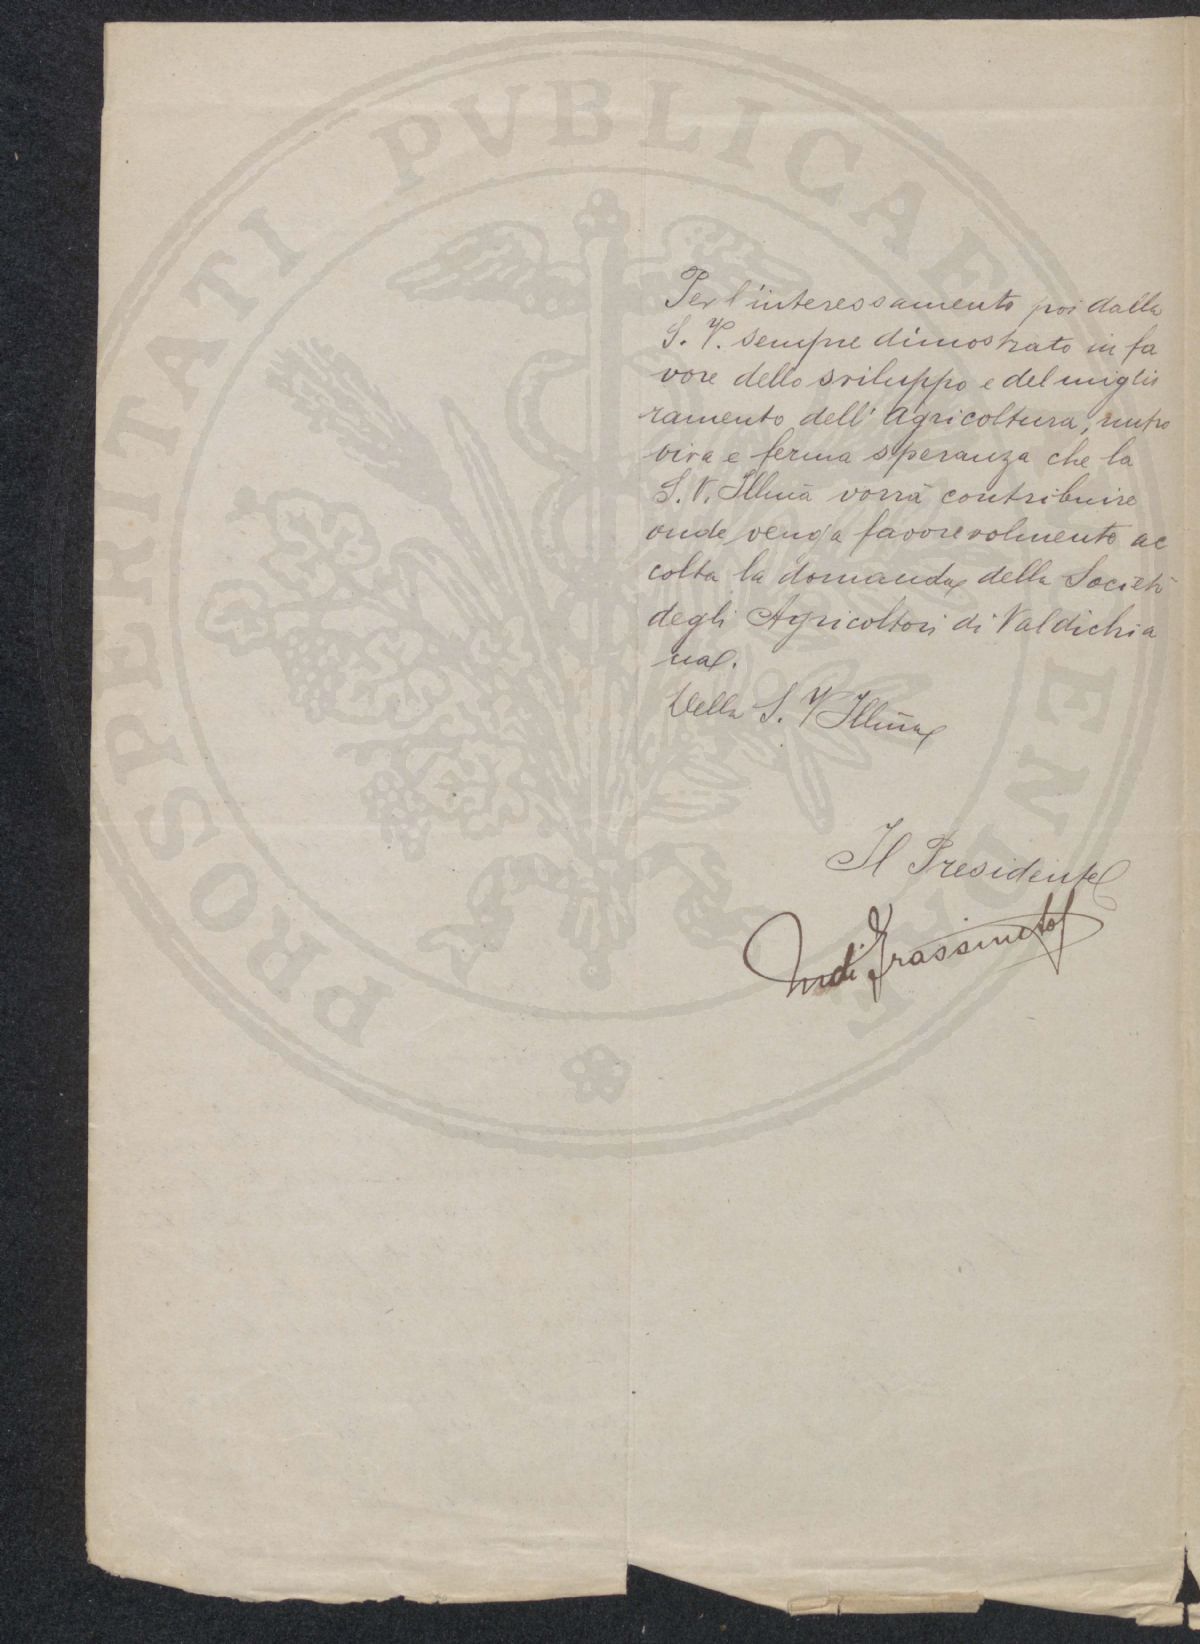 PROSPERITATI PVBLICAE AVGENDAE
Per l'interessamento poi dalla
S. V. sempre dimostrato in fa
vore dello sviluppo e del miglio
ramento dell'Agricoltura, nutro
viva e ferma speranza che la
S. V. Illmã vorrà contribuire
onde venga favorevolmente ac
colta la domanda della Società
degli Agricoltori di Valdichia
na.
Della S. V Illmã
Il Presidente
di Frassineto